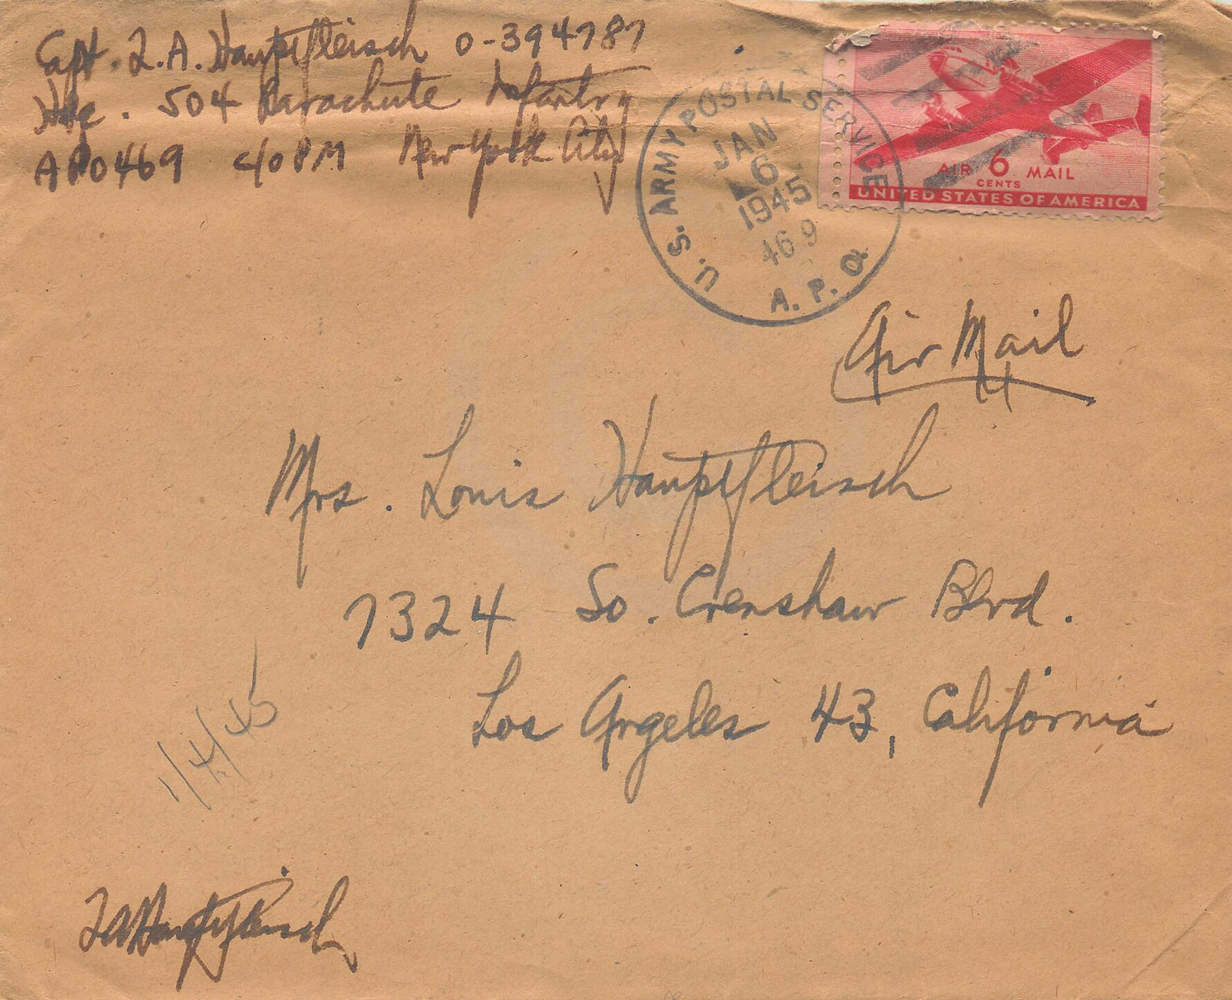 Capt. L.A. Hauptfleisch O-394787
Hdq. 504 Parachute Infantry
APO469 c/o PM New York City
U.S. ARMY POSTAL SERVICE
JAN
6
1945
469
A.P.O.
AIR 6 MAIL
CENTS
UNITED STATES OF AMERICA
Air Mail
Mrs. Louis Hauptfleisch
7324 So. Crenshaw Blvd.
Los Angeles 43, California
1/14/45
LAHauptfleisch